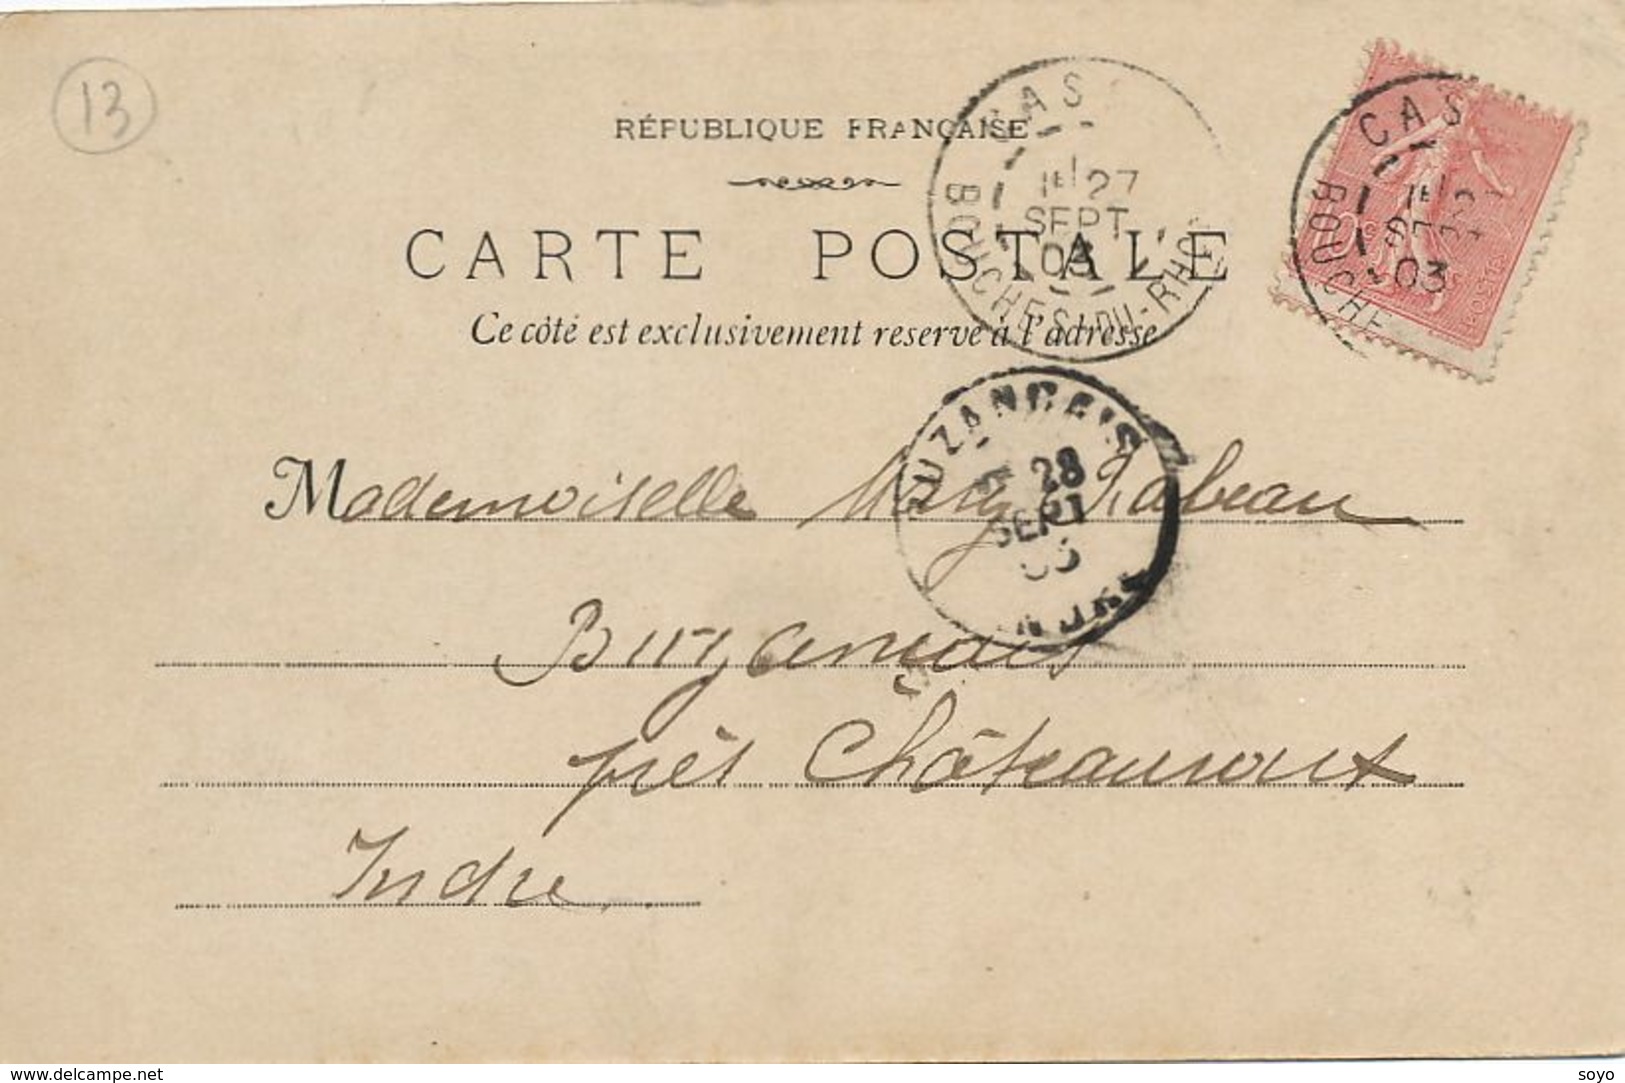 13
RÉPUBLIQUE FRANÇAISE
CARTE POSTALE
Ce côté est exclusivement reservé à l'adresse
CAS
1E/27
SEPT
03
BOUCHES-DU-RHÔ
CAS
1E/2
03
BOUCHE
10c
POSTES
UZANÇAIS
28
SEPT
03
INDRE
Mademoiselle Mary Rabeau
Buzançais
près Châteauroux
Indre
www.delcampe.net
soyo